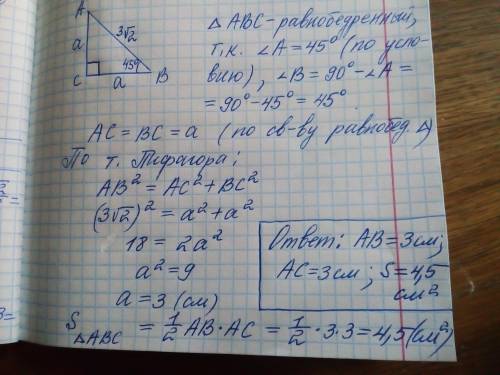 A
3√2
a
45°
C
a
B
△ABC-равнобедренный,
т.к. ∠A=45° (по усло-
вию), ∠B=90°-∠A=
=90°-45°=45°.
AC=BC=a (по св-ву равнобед. △)
По т. Пифагора:
AB²=AC²+BC²
(3√2)²=a²+a²
18=2a²
a²=9
a=3 (см)
S△ABC = 1/2 AB·AC = 1/2 · 3·3=4,5(см²)
Ответ: AB=3см;
AC=3см; S=4,5
см²